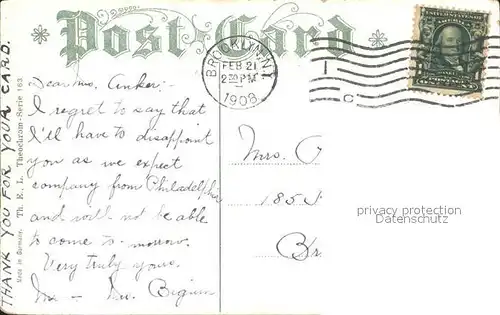 Post Card
BROOKLYN, N.Y.
FEB 21
2 30 PM
1908
THANK YOU FOR YOUR CARD.
Th. E. L. Theochrom-Serie
Made in Germany.
Dear Mrs. Anker:-
I regret to say that
I'll have to disappoint
you as we expect
company from Philadelphia
and will not be able
to come to-morrow.
Very truly yours.
Mrs.
185
Br
privacy protection
Datenschutz